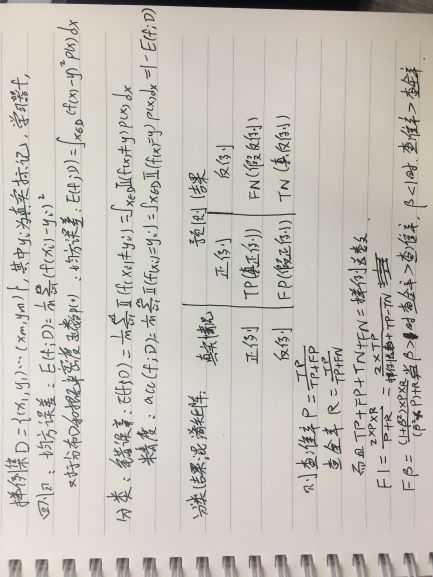 样例集 D = {(x1, y1) … (xm, ym)}, 其中 yi 为真实标记, 学习器 f,
回归: 均方误差: E(f; D) = 1/m Σ (f(xi) - yi)²
对分布D和概率密度函数p(·) : 均方误差: E(f; D) = ∫x∈D (f(x) - y)² p(x) dx
分类: 错误率: E(f; D) = 1/m Σ II(f(xi) ≠ yi) = ∫x∈D II(f(x) ≠ y) p(x) dx
精度: acc(f; D) = 1/m Σ II(f(xi) = yi) = ∫x∈D II(f(x) = y) p(x) dx = 1 - E(f; D)
分类结果混淆矩阵:
真实情况 预测结果
正例 反例
正例 TP(真正例) FN(假反例)
反例 FP(假正例) TN(真反例)
则查准率 P = TP/(TP+FP)
查全率 R = TP/(TP+FN)
而且 TP+FP+TN+FN = 样例总数
F1 = 2×P×R/(P+R) = 2×TP/(样例总数+TP-TN)
Fβ = (1+β²)×P×R/((β²×P)+R) 当 β>1时 查全率>查准率, β<1时 查准率>查全率.